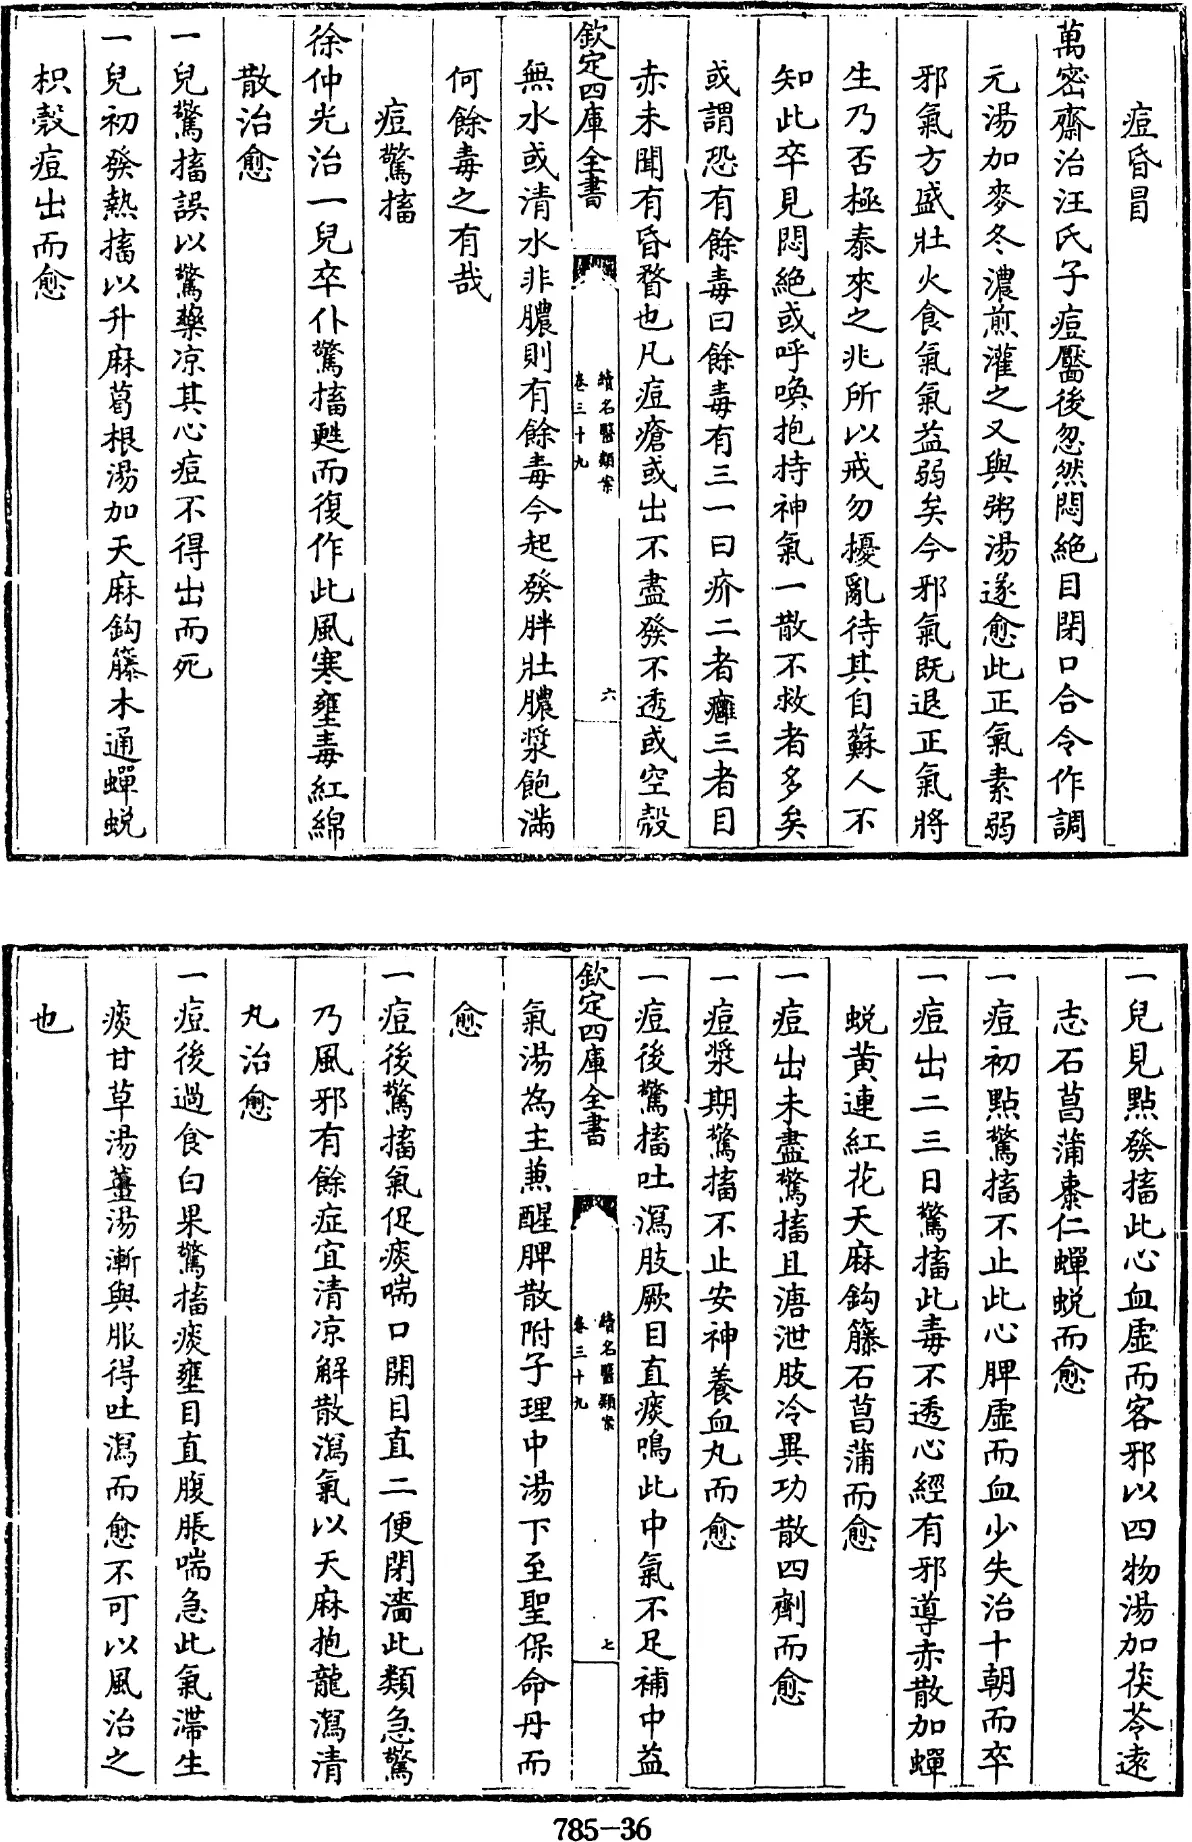 痘昏冒
萬密齋治汪氏子痘靨後忽然悶絶目閉口合令作調
元湯加麥冬濃煎灌之又與粥湯遂愈此正氣素弱
邪氣方盛壯火食氣氣益弱矣今邪氣既退正氣將
生乃否極泰來之兆所以戒勿擾亂待其自蘇人不
知此卒見悶絶或呼喚抱持神氣一散不救者多矣
或謂恐有餘毒曰餘毒有三一曰疥二者癰三者目
赤未聞有昏瞀也凡痘瘡或出不盡發不透或空殼
欽定四庫全書
續名醫類案
卷三十九
六
無水或清水非膿則有餘毒今起發胖壯膿漿飽滿
何餘毒之有哉
痘驚搐
徐仲光治一兒卒仆驚搐甦而復作此風寒壅毒紅綿
散治愈
一兒驚搐誤以驚藥凉其心痘不得出而死
一兒初發熱搐以升麻葛根湯加天麻鈎籐木通蟬蛻
枳殼痘出而愈
一兒見點發搐此心血虛而客邪以四物湯加茯苓遠
志石菖蒲棗仁蟬蛻而愈
一痘初點驚搐不止此心脾虛而血少失治十朝而卒
一痘出二三日驚搐此毒不透心經有邪導赤散加蟬
蛻黄連紅花天麻鈎籐石菖蒲而愈
一痘出未盡驚搐且溏泄肢冷異功散四劑而愈
一痘漿期驚搐不止安神養血丸而愈
一痘後驚搐吐瀉肢厥目直痰鳴此中氣不足補中益
欽定四庫全書
續名醫類案
卷三十九
七
氣湯為主蕉醒脾散附子理中湯下至聖保命丹而
愈
一痘後驚搐氣促痰喘口開目直二便閉濇此類急驚
乃風邪有餘症宜清凉解散瀉氣以天麻抱龍瀉清
丸治愈
一痘後過食白果驚搐痰壅目直腹脹喘急此氣滯生
痰甘草湯薑湯漸與服得吐瀉而愈不可以風治之
也
785-36